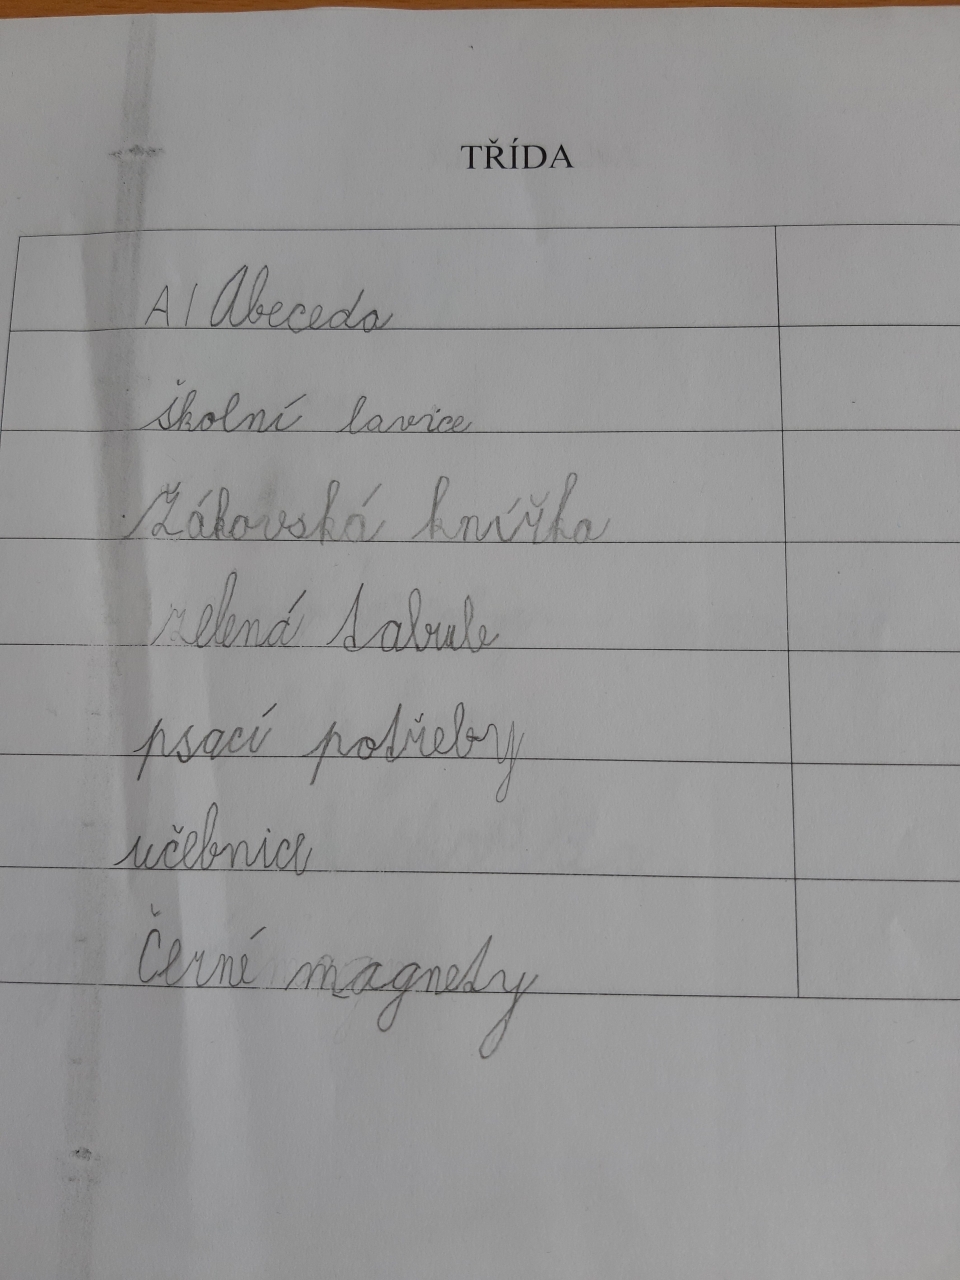 TŘÍDA
A/ Abeceda
školní lavice
Žákovská knížka
zelená tabule
psací potřeby
učebnice
Černé magnety